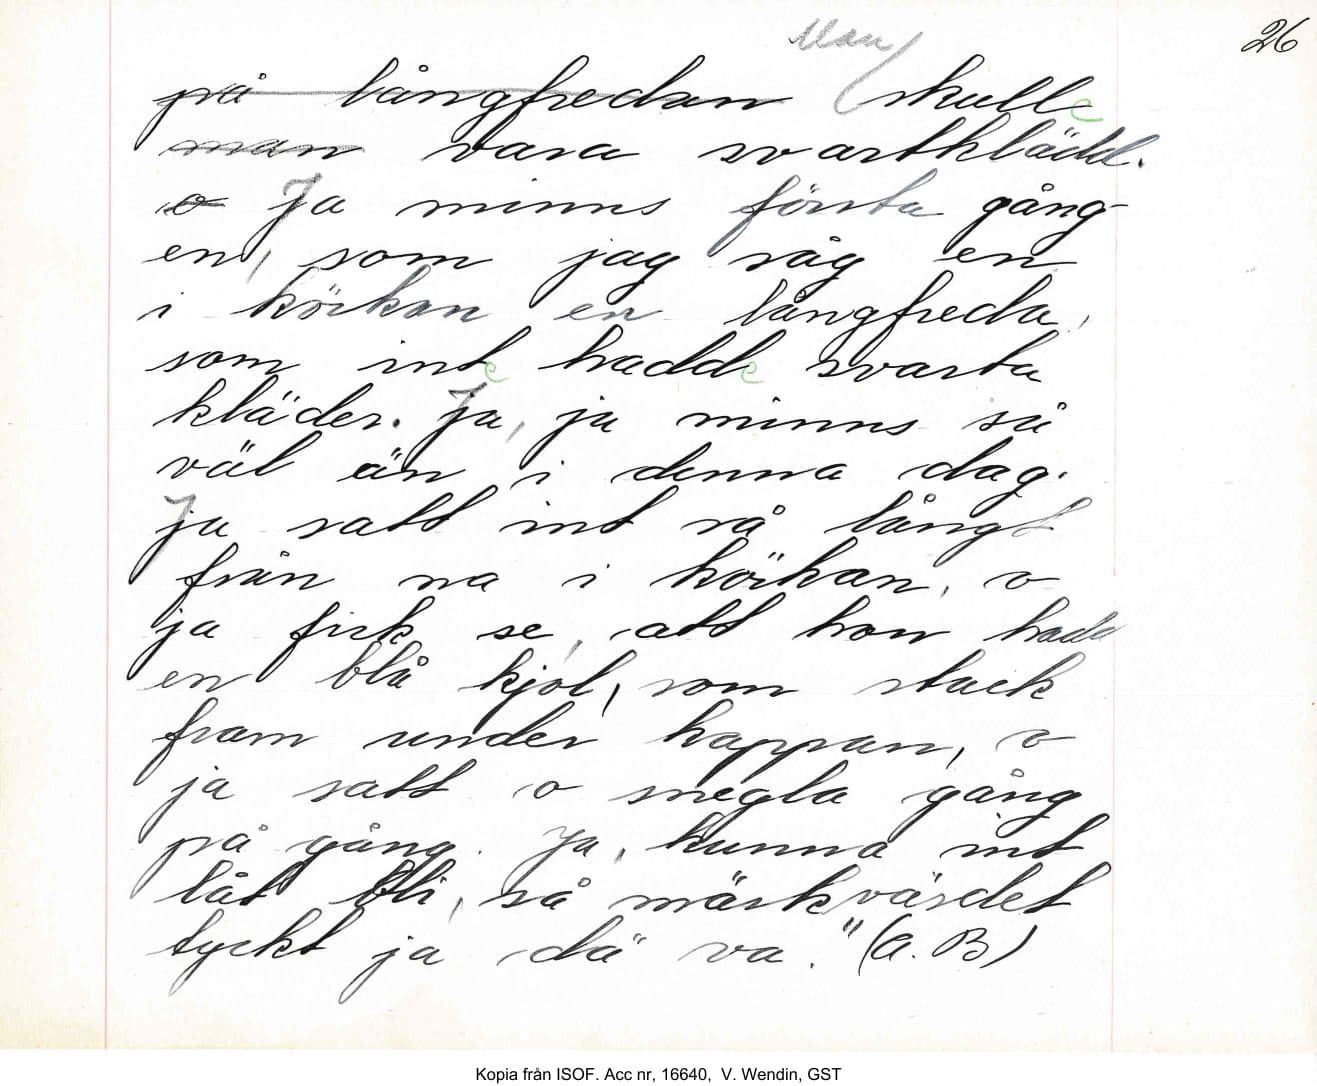 26
Man
på långfredan skulle
man vara svartklädd.
o Ja minns första gång-
en, som jag såg en
i körkan en långfreda,
som inte hadde svarta
kläder. Ja, ja minns så
väl än i denna dag.
Ja satt int så långt
från na i körkan, o
ja fick se, att hon hadd
en blå kjol, som stack
fram under kappan, o
ja satt o snegla gång
på gång. Ja, kunna int
låt bli, så märkvärdet
tyckt ja dä va." (A. B)
Kopia från ISOF. Acc nr, 16640, V. Wendin, GST